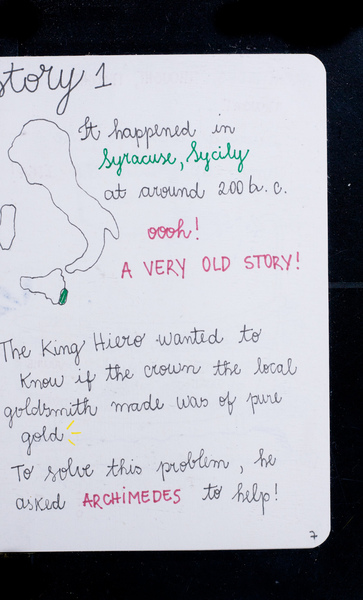 story 1
It happened in
Syracuse, Sycily
at around 200 b. c.
oooh!
A VERY OLD STORY!
The King Hiero wanted to
know if the crown the local
goldsmith made was of pure
gold
To solve this problem, he
asked ARCHIMEDES to help!
7